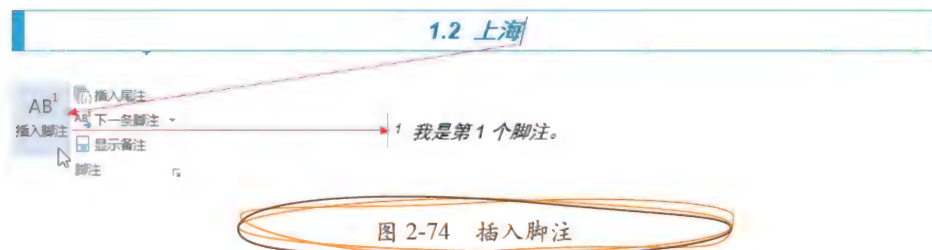 1.2 上海
AB¹
插入脚注
插入尾注
AB¹ 下一条脚注
显示备注
脚注
1 我是第1个脚注。
图 2-74 插入脚注